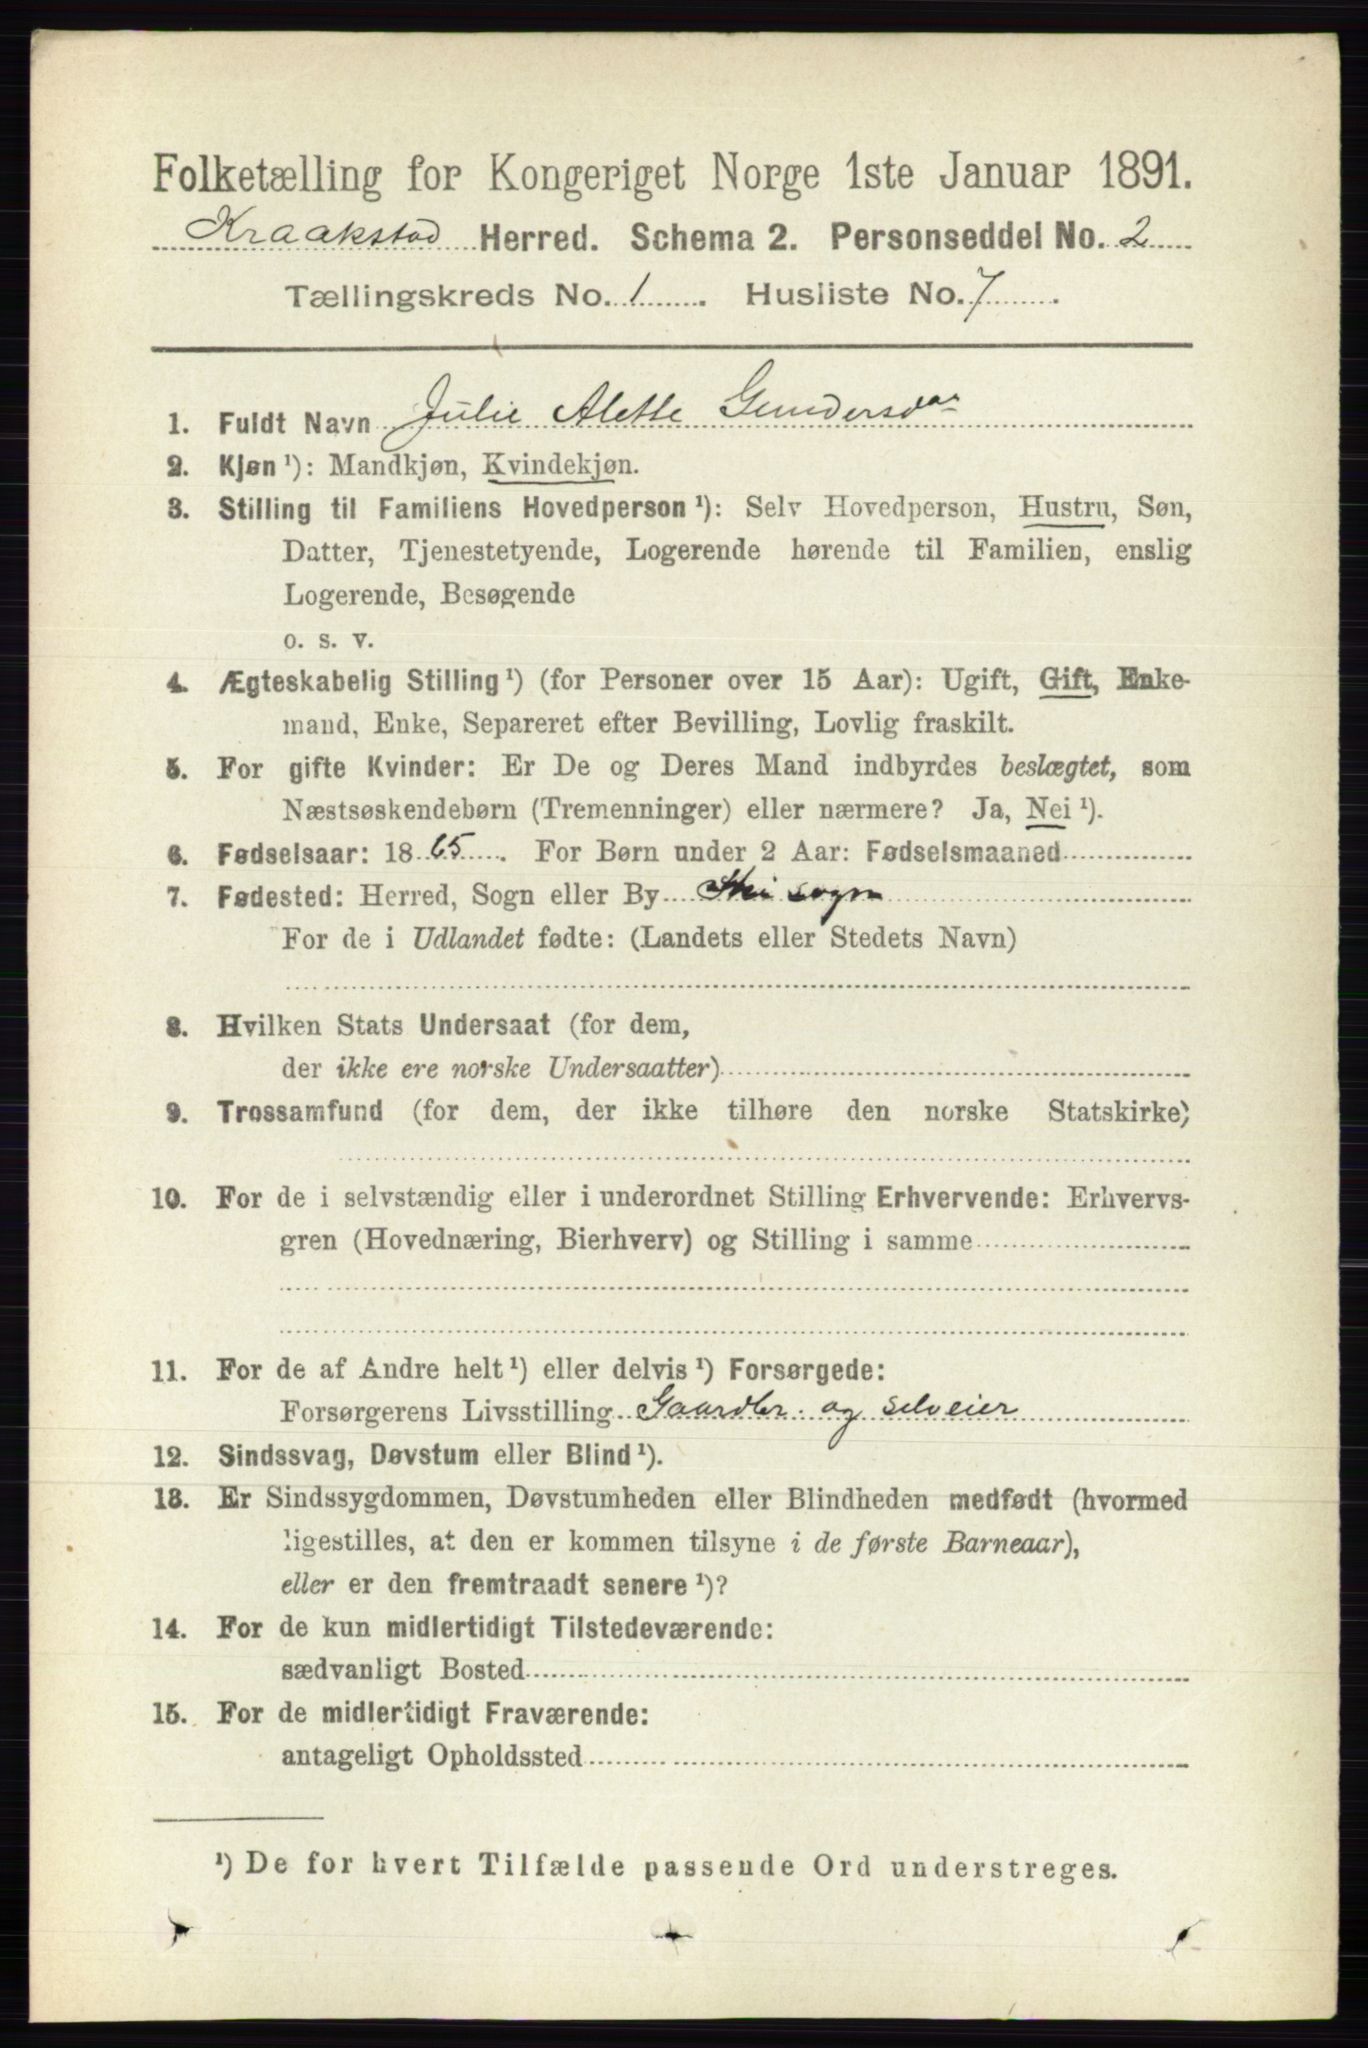 Folketælling for Kongeriget Norge 1ste Januar 1891.
Kraakstad Herred. Schema 2. Personseddel No. 2
Tællingskreds No. 1. Husliste No. 7.
1. Fuldt Navn Julie Alette Gundersdar
2. Kjøn ¹): Mandkjøn, Kvindekjøn.
3. Stilling til Familiens Hovedperson ¹): Selv Hovedperson, Hustru, Søn,
Datter, Tjenestetyende, Logerende hørende til Familien, enslig
Logerende, Besøgende
o. s. v.
4. Ægteskabelig Stilling ¹) (for Personer over 15 Aar): Ugift, Gift, Enke-
mand, Enke, Separeret efter Bevilling, Lovlig fraskilt.
5. For gifte Kvinder: Er De og Deres Mand indbyrdes beslægtet, som
Næstsøskendebørn (Tremenninger) eller nærmere? Ja, Nei ¹).
6. Fødselsaar: 1865. For Børn under 2 Aar: Fødselsmaaned
7. Fødested: Herred, Sogn eller By Ski sogn
For de i Udlandet fødte: (Landets eller Stedets Navn)
8. Hvilken Stats Undersaat (for dem,
der ikke ere norske Undersaatter)
9. Trossamfund (for dem, der ikke tilhøre den norske Statskirke)
10. For de i selvstændig eller i underordnet Stilling Erhvervende: Erhvervs-
gren (Hovednæring, Bierhverv) og Stilling i samme
11. For de af Andre helt ¹) eller delvis ¹) Forsørgede:
Forsørgerens Livsstilling Gaardbr. og selveier
12. Sindssvag, Døvstum eller Blind ¹).
13. Er Sindssygdommen, Døvstumheden eller Blindheden medfødt (hvormed
ligestilles, at den er kommen tilsyne i de første Barneaar),
eller er den fremtraadt senere ¹)?
14. For de kun midlertidigt Tilstedeværende:
sædvanligt Bosted
15. For de midlertidigt Fraværende:
antageligt Opholdssted
¹) De for hvert Tilfælde passende Ord understreges.